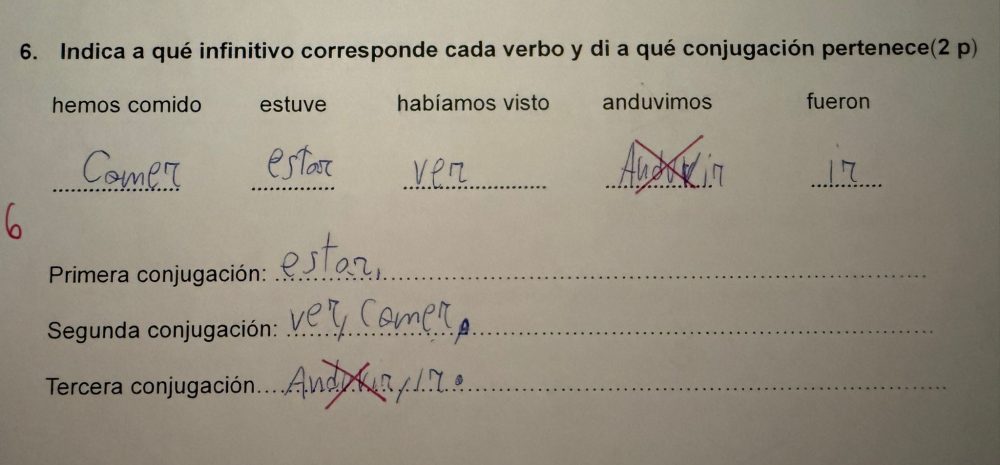 6. Indica a qué infinitivo corresponde cada verbo y di a qué conjugación pertenece(2 p)
hemos comido estuve habíamos visto anduvimos fueron
Comer estar ver Anduvir ir
6
Primera conjugación: estar,
Segunda conjugación: ver, Comer,
Tercera conjugación.... Anduvir, ir.